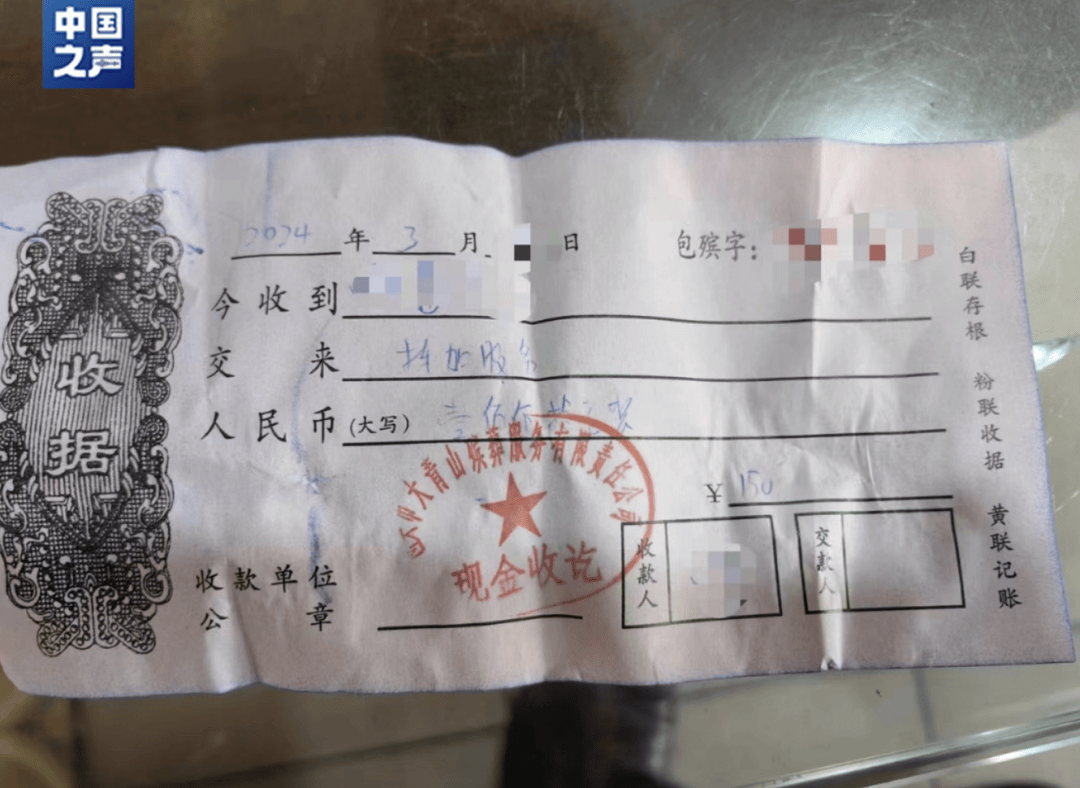 中国之声
2024年3月 日
包殡字：
今收到
交来 服务
人民币(大写) 壹佰伍
¥ 150
收据
大青山殡葬服务有限责任公司
现金收讫
收款单位公章
收款人
交款人
白联存根 粉联收据 黄联记账